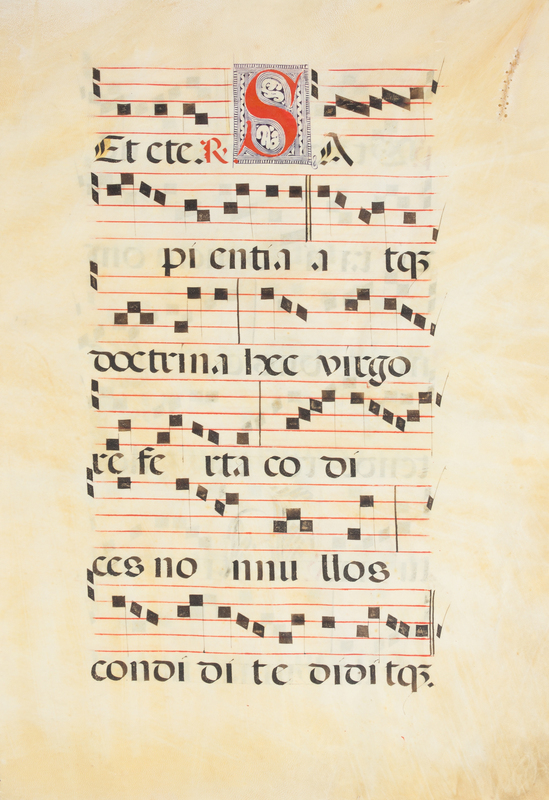 Et cte. R. SA
pi entia a tqꝫ
doctrina hec virgo
re fe rta co di
ces no nnu llos
condi di te diditqꝫ.